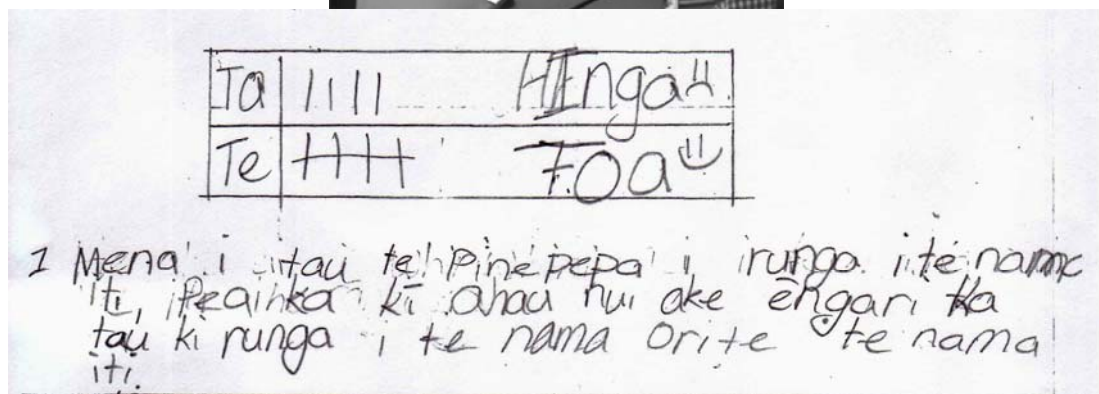 Ta |||| HInga
Te |||| TOa
1 Mena i tau te pine pepa i runga i te nama
iti, ka ki ahau nui ake engari ka
tau ki runga i te nama orite te nama
iti.